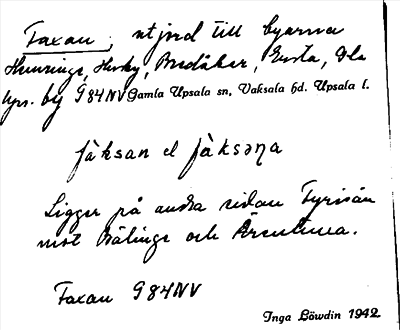 Faxan, utjord till byarna
Hunninge, Husby, Bredåker, Ensta, Gla
Ups. by G84NV Gamla Upsala sn, Vaksala hd. Upsala l.
fàksan el fàksəna
Ligger på andra sidan Fyrisån
mot Bälinge och Ärentuna.
Faxan G84NV
Inga Löwdin 1942